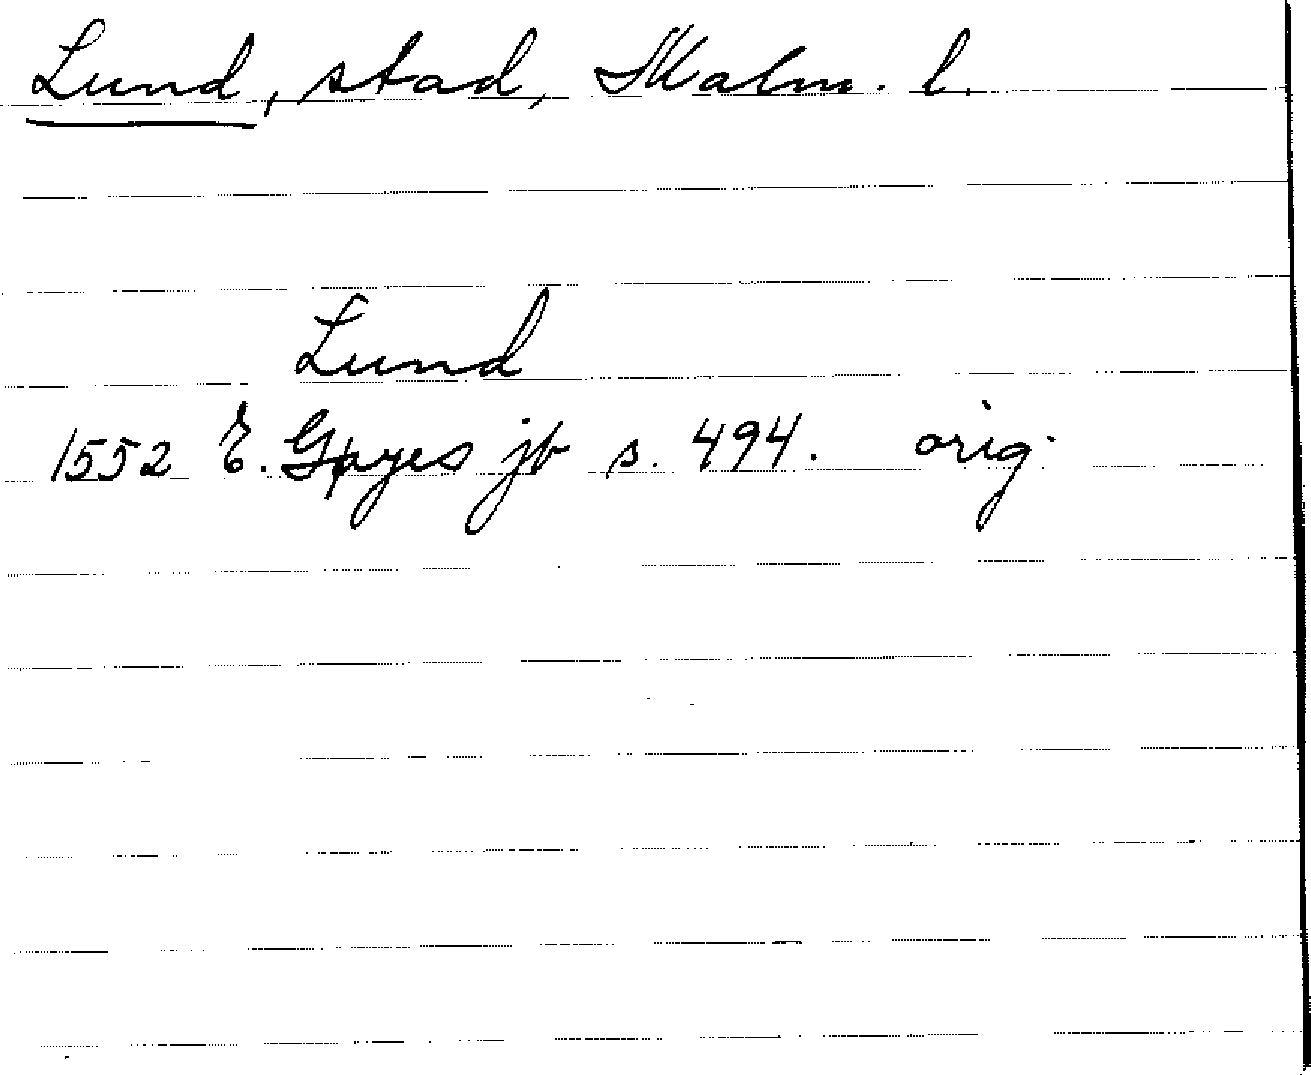 Lund, stad, Malm. l.
Lund
1552 E. Gøyes jb s. 494. orig.